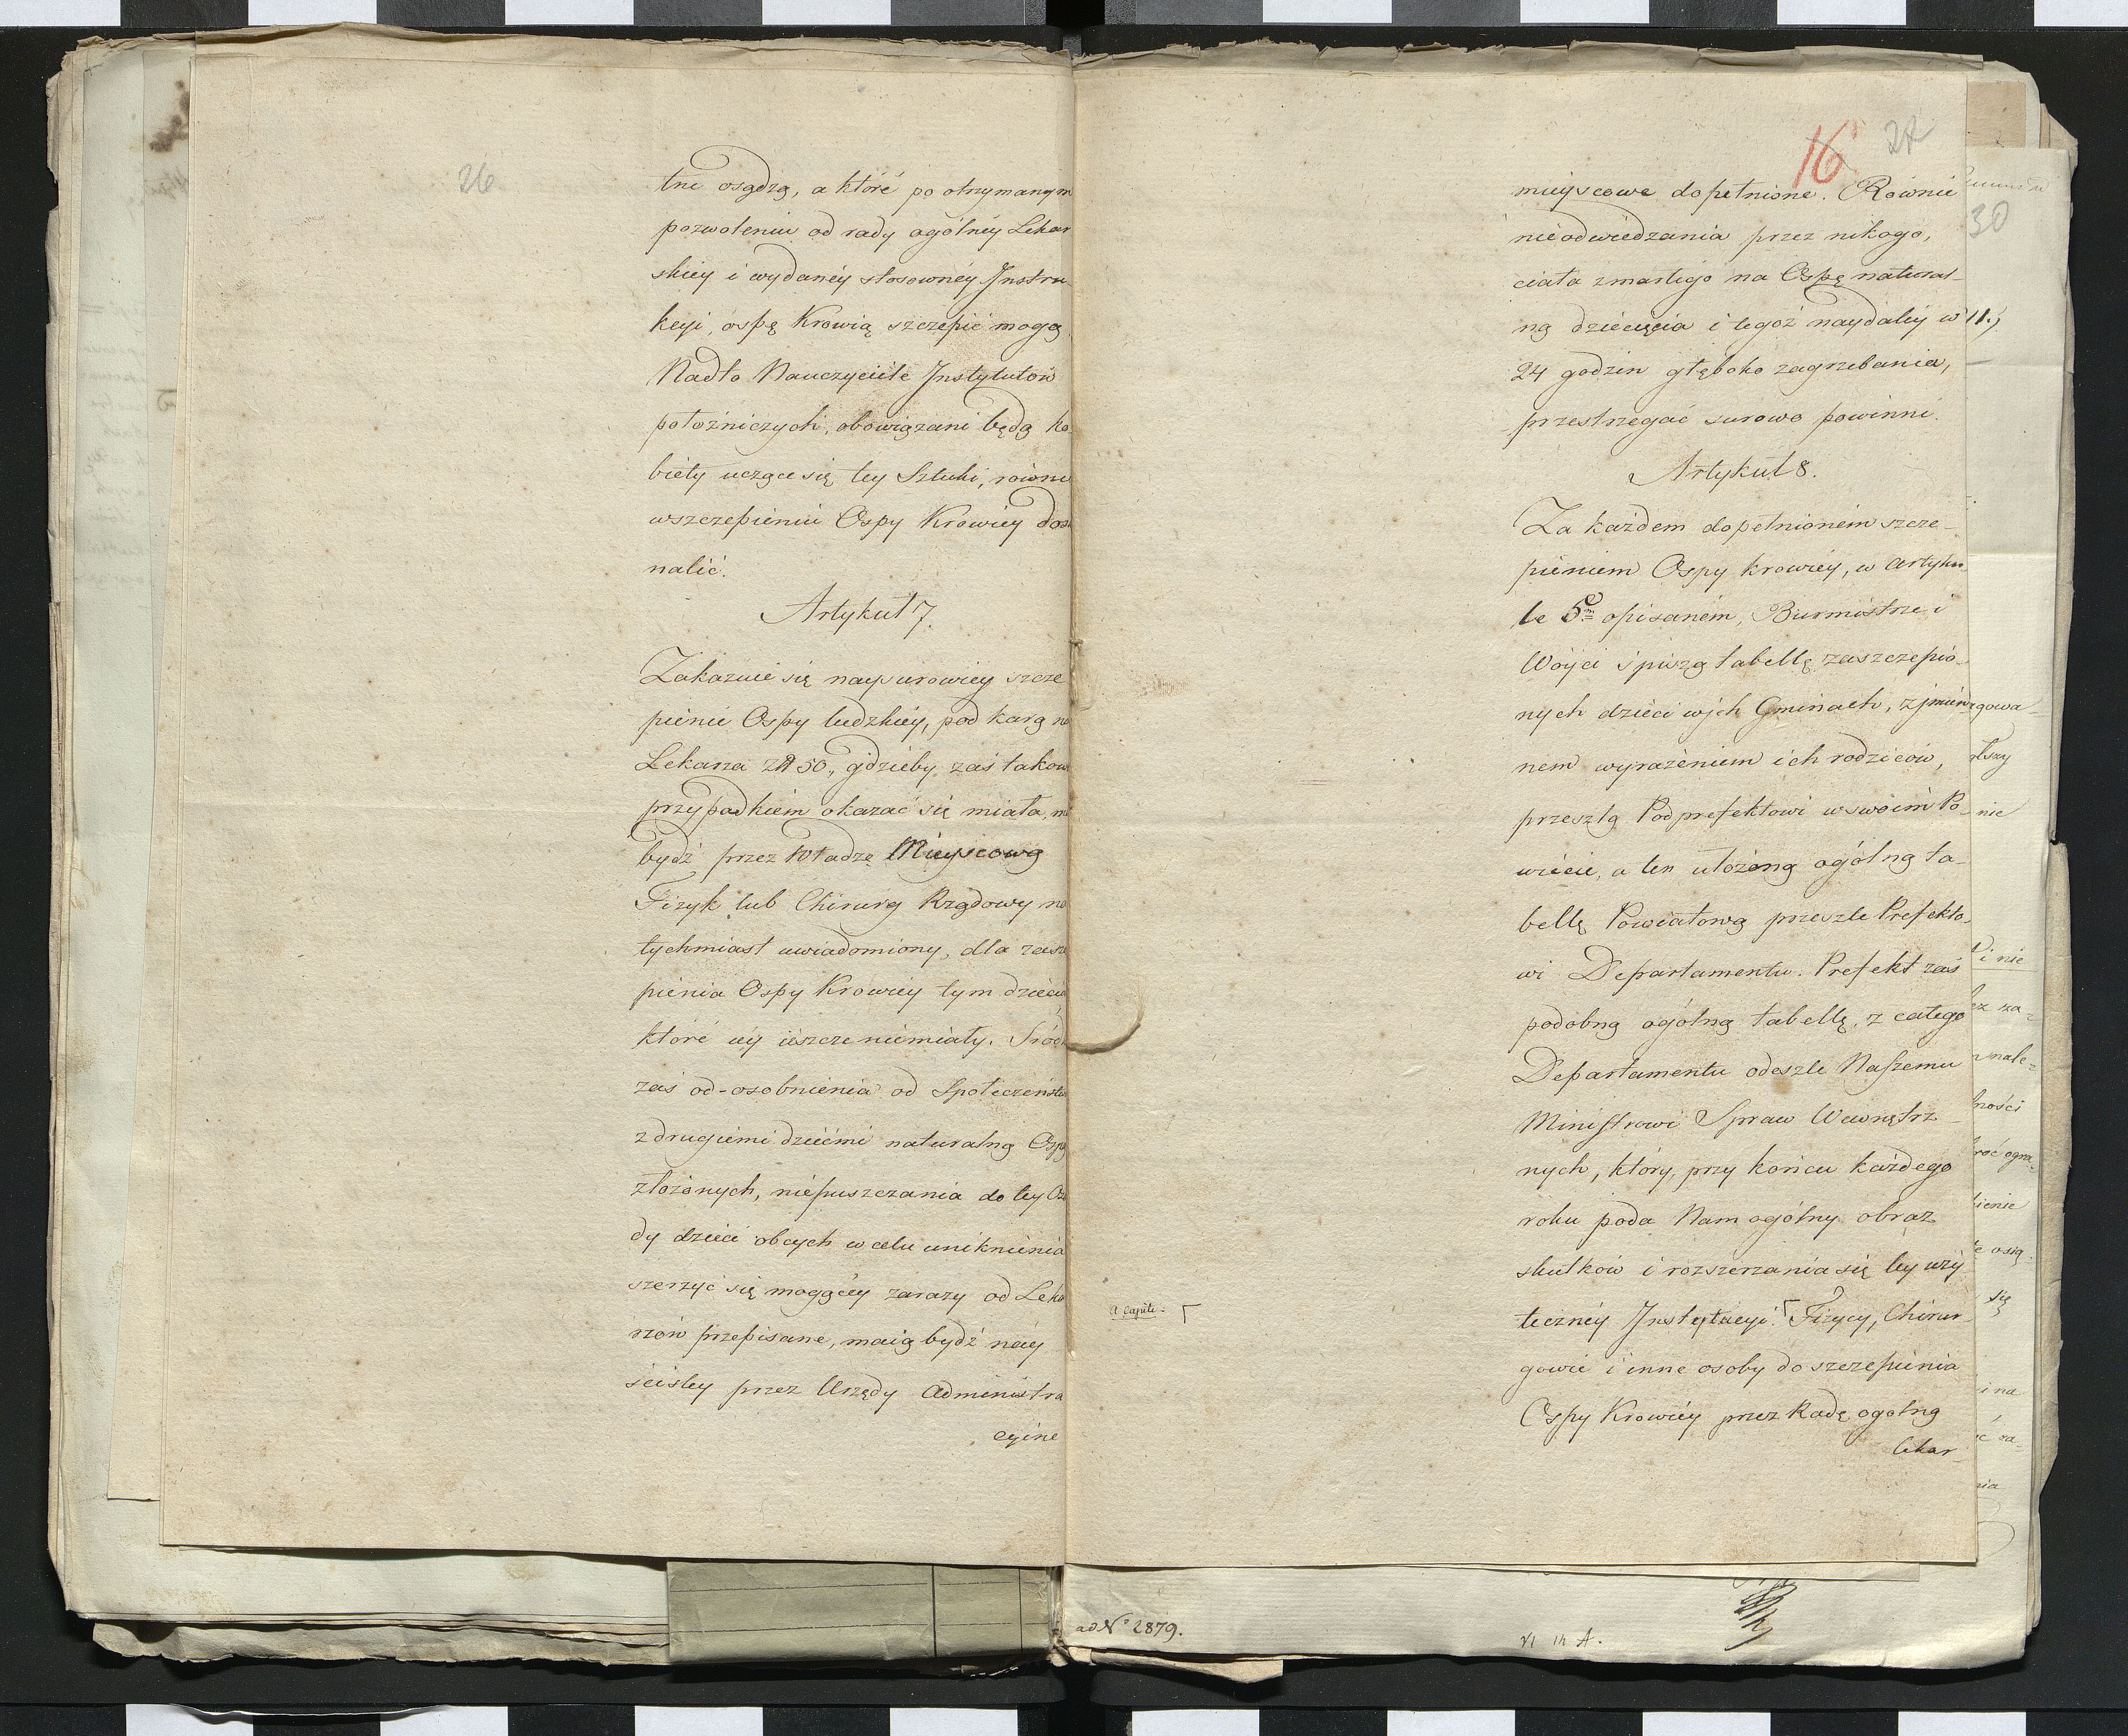 26
tne osądzą, a które po otrzymanym
pozwoleniu od rady ogólnéy Lekar
skiey i wydanéy stosownéy Instru-
kcyi, ospę Krowią szczepić mogą
Nadto Nauczyciele Instytutów
położniczych, obowiązani będą ko-
biety uczące się tey Sztuki, równie
wszczepieniu Ospy Krowiey dos
nalić.
Artykuł 7.
Zakazuie się naysurowiey szcze
pienie Ospy ludzkiéy, pod karą na
Lekarza Zł 50, gdzieby zaś takow
przypadkiem okazać się miała, m
bydź przez Władzę Mieyscową
Fizyk lub Chirurg Rządowy na
tychmiast uwiadomiony, dla zasz
pienia Ospy Krowiey tym dziecio
które iéy ieszcze niemiały. Śród
zaś od-osobnienia od Społeczeństw
z drugiemi dziećmi naturalną Ospą
złożonych, niepuszczania do tey Os
dy dzieci obcych w celu uniknienia
szerzyć się mogącéy zarazy od Leka
rzów przepisane, maią bydź náy
ściśley przez Urzędy Administra
cyine
16 27
mieyscowe dopełnione. Równie
nieodwiedzania przez nikogo,
ciała zmarłego na Ospę natural-
ną dziecięcia i tegoż naydaléy w
24 godzin głęboko zagrzebania,
przestrzegać surowo powinni.
Artykuł 8.
Za każdem dopełnioném szcze-
pieniem Ospy krowiéy, w artyku-
le 5m opisaném, Burmistrze i
Wóyci spiszą tabellę zaszczepio-
nych dzieci wjch Gminach, z jmien
nem wyrażeniem ich rodziców,
przeszlą Podprefektowi w swoim Po-
wiecie, a ten ułożoną ogólną ta-
bellę Powiatową przeszle Prefekto-
wi Departamentu. Prefekt zaś
podobną ogólną tabellę, z całego
Departamentu odeszle Naszemu
Ministrowi Spraw Wewnętrz-
nych, który, przy końcu każdego
roku poda Nam ogólny obraz
skutków i rozszerzania się tey uży
teczney Instytucyi. Fizycy, Chirur-
a capite. ┌
gowie i inne osoby do szczepienia
Ospy Krowiéy przez Radę ogólną
lekar-
30
11.)
ad N° 2879.